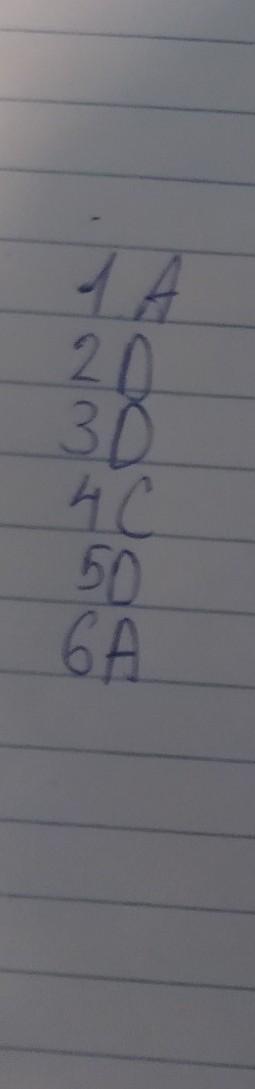 1 A
2 D
3 D
4 C
5 D
6 A